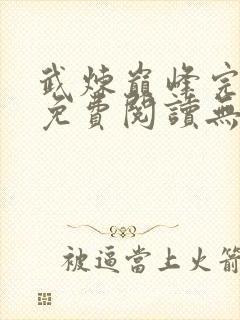 武煉巔峰完
免費閱讀無
被逼當上火箭